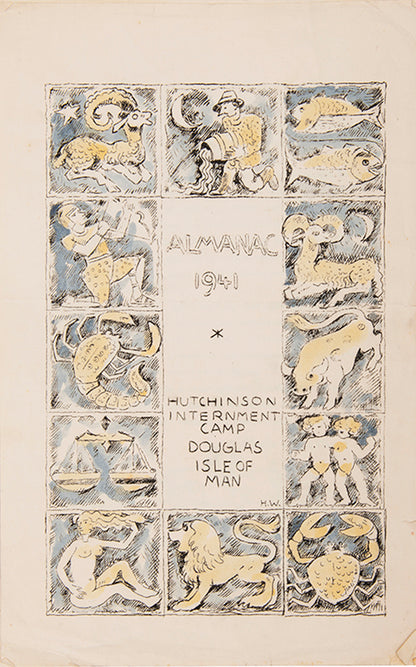 ALMANAC
1941
*
HUTCHINSON
INTERNMENT
CAMP
DOUGLAS
ISLE OF
MAN
H.W.